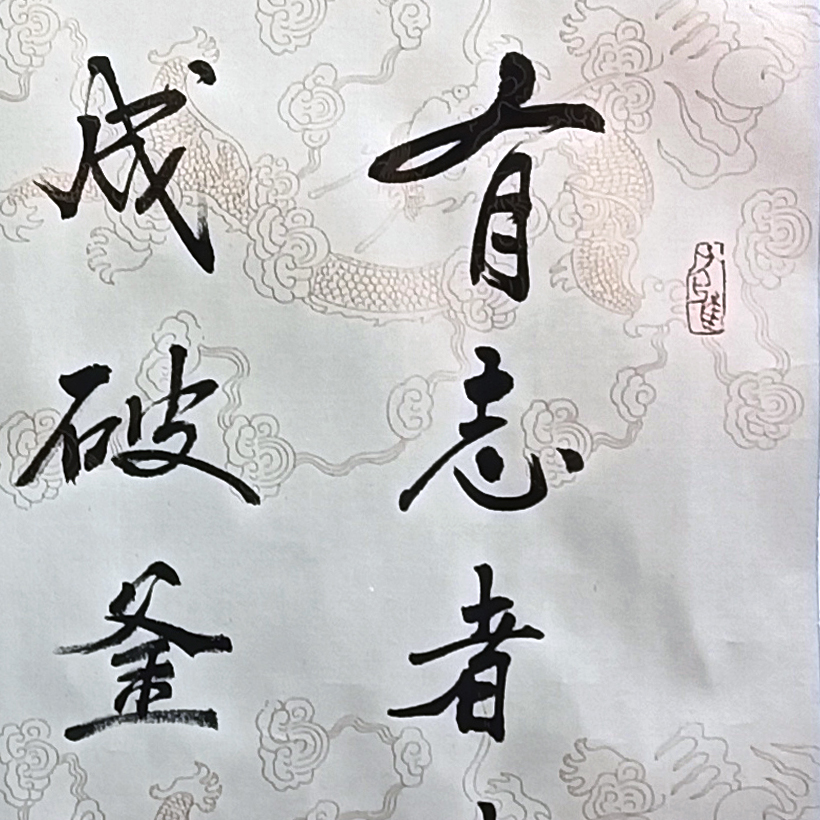 有志者
成破釜